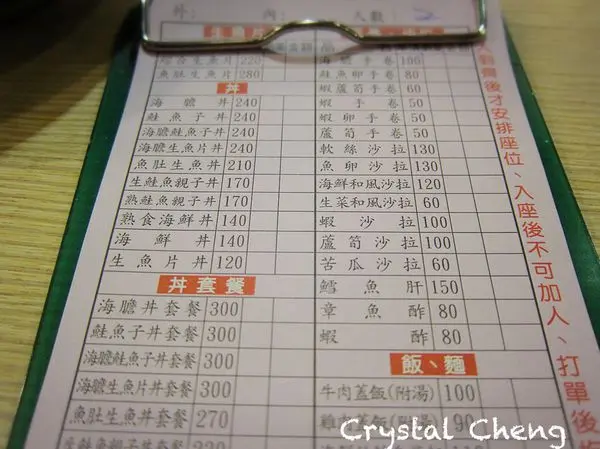 外：
內：
人數
2
生魚片
綜合生魚片 220
魚肚生魚片 280
丼
海膽丼 240
鮭魚子丼 240
海膽鮭魚子丼 240
海膽生魚片丼 240
魚肚生魚丼 210
生鮭魚親子丼 170
熟鮭魚親子丼 170
熟食海鮮丼 140
海鮮丼 140
生魚片丼 120
丼套餐
海膽丼套餐 300
鮭魚子丼套餐 300
海膽鮭魚子丼套餐 300
海膽生魚片丼套餐 300
魚肚生魚丼套餐 270
生鮭魚親子丼套餐
品
海膽手卷 100
鮭魚卵手卷 80
蝦蘆筍手卷 60
蝦手卷 50
蝦卵手卷 50
蘆筍手卷 50
軟絲沙拉 130
魚卵沙拉 130
海鮮和風沙拉 120
生菜和風沙拉 60
蝦沙拉 100
蘆筍沙拉 100
苦瓜沙拉 60
鱈魚肝 150
章魚酢 80
蝦酢 80
飯、麵
牛肉蓋飯(附湯) 100
雞肉蓋飯(附湯) 90
到齊後才安排座位、入座後不可加人、打單後
Crystal Cheng